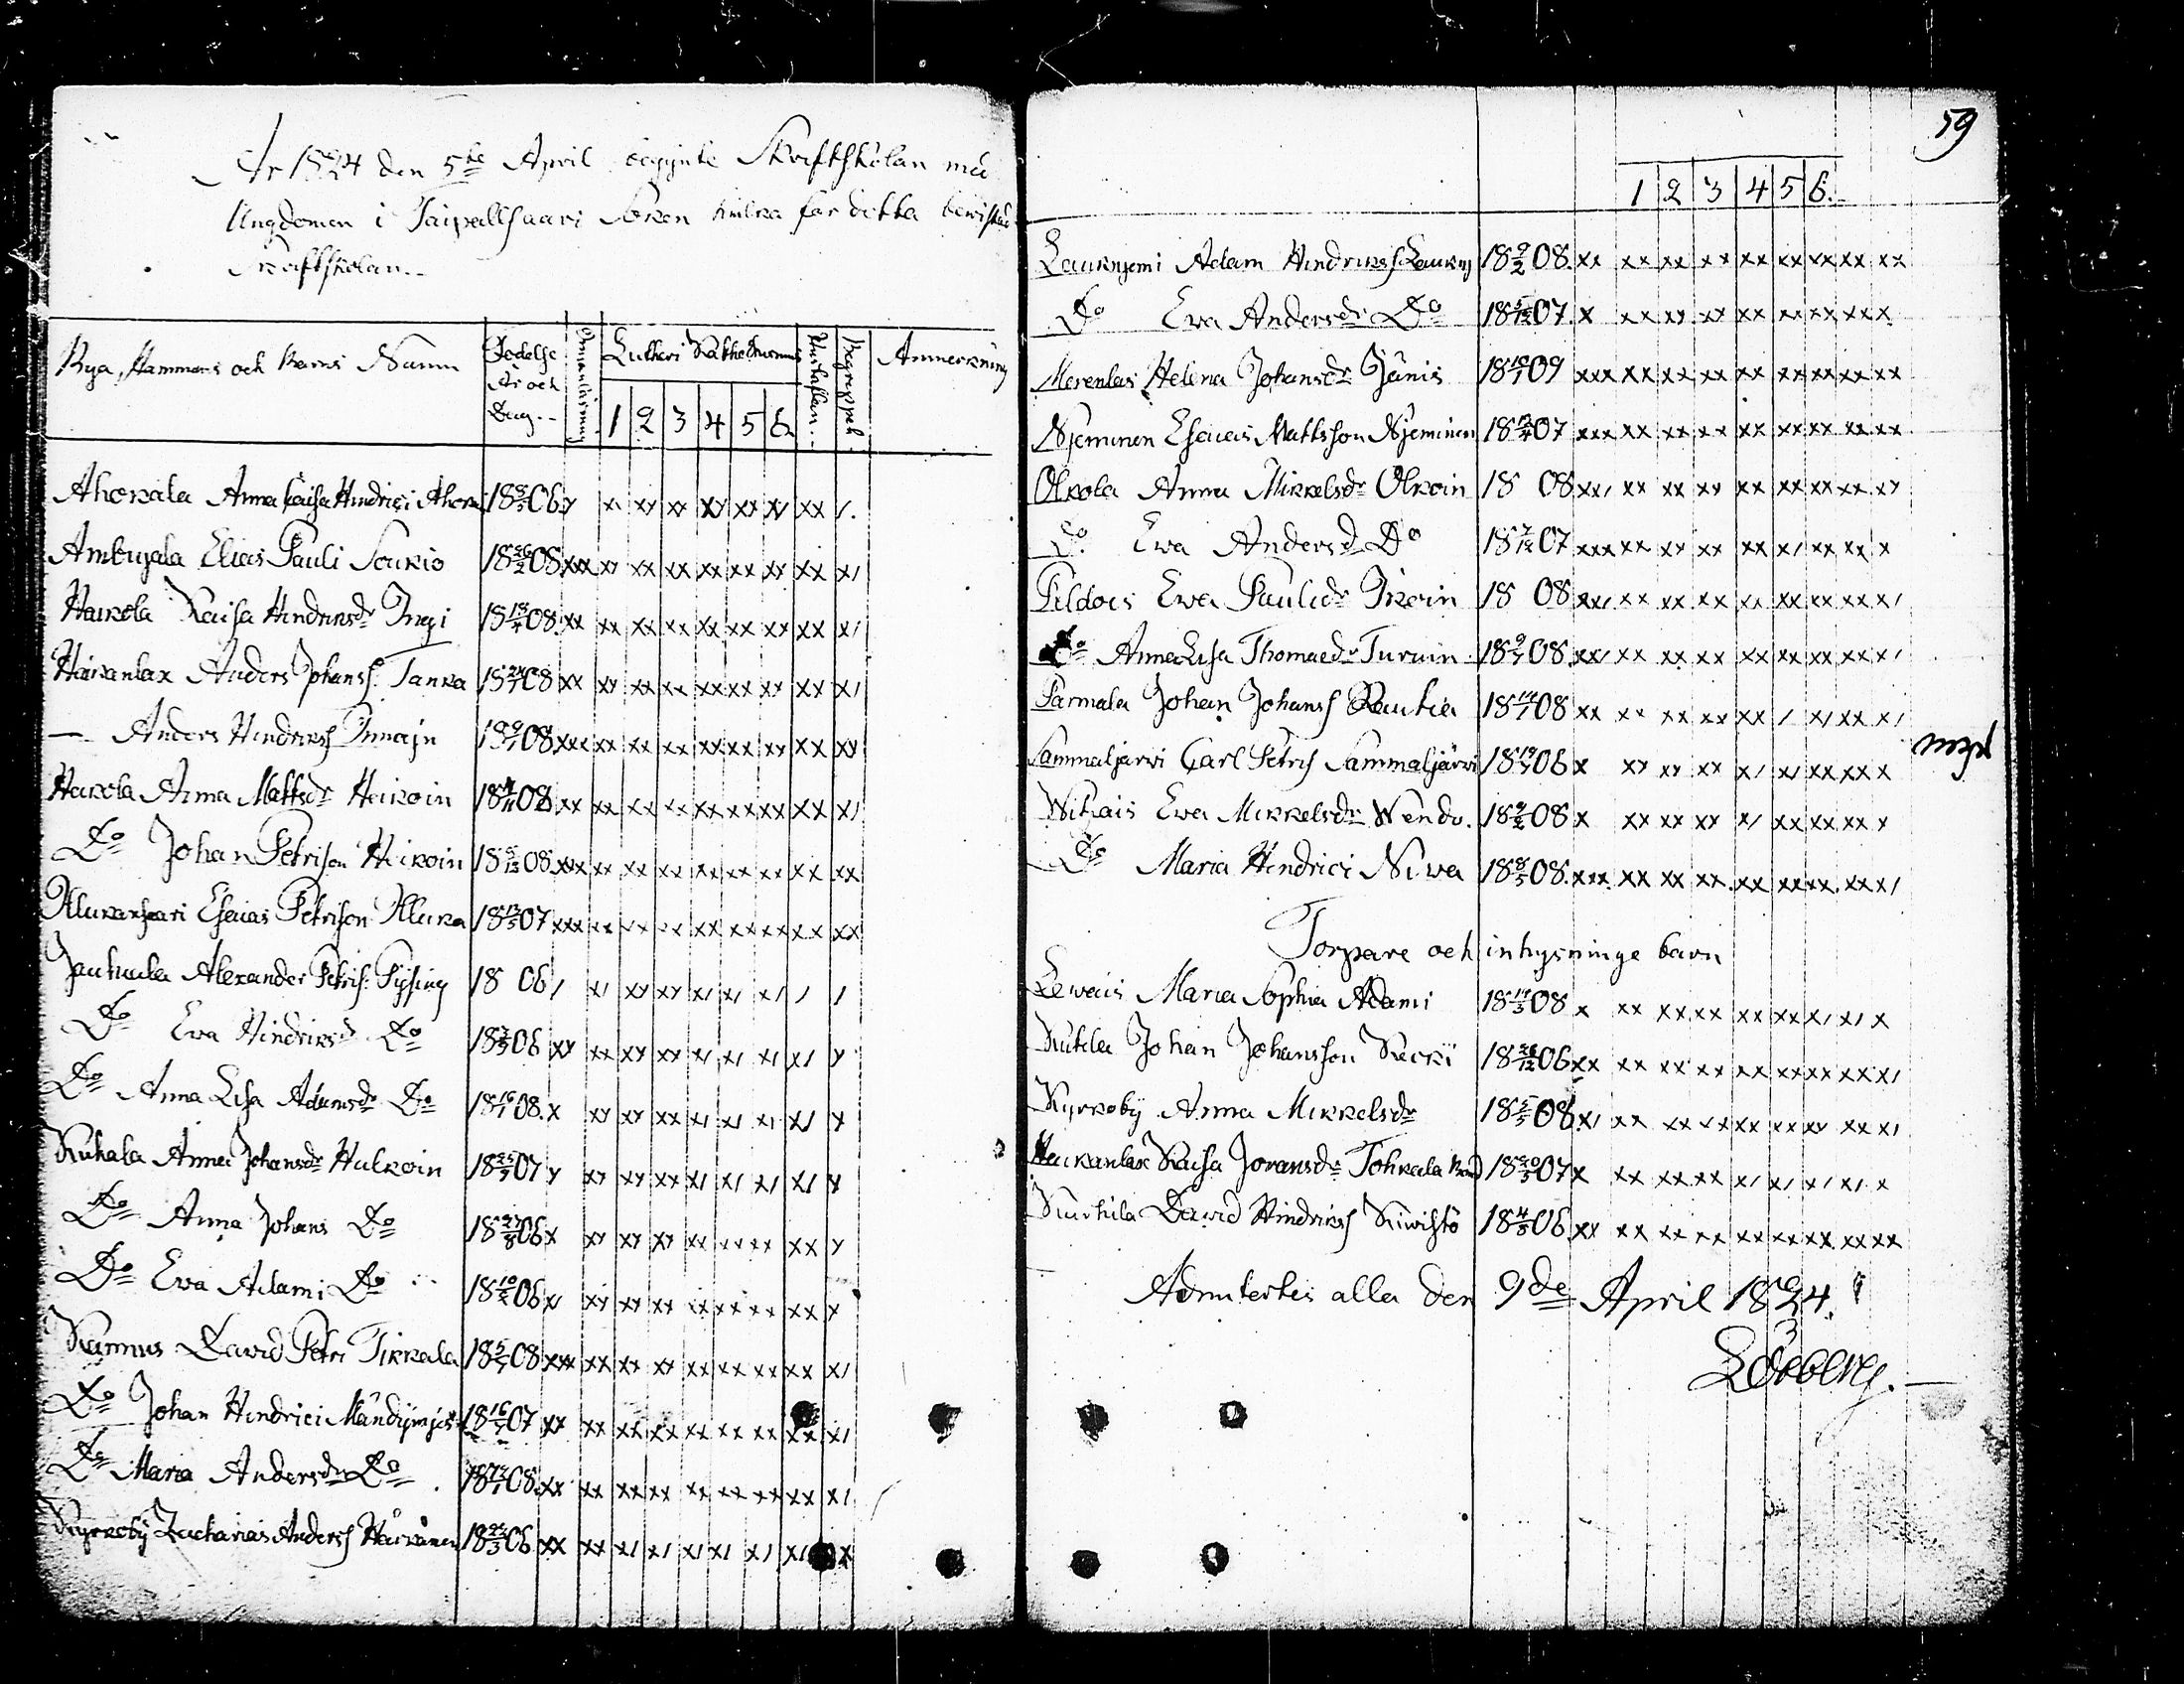 År 1824 den 5te April begynte Skriftskolan med
Ungdomen i Taipallsaari Soken hvilka för detta bewistat
Skriftskolan.
Bya, Hammans och Barns Namn Födelse År och Dag Innanläsning Lutheri Katkesmus 1 2 3 4 5 6 Hustaflan Begreppet Anmerkning
Ahokala Anna Caisa Hindrici Ahoka 18 06 y x xy xx xy xy xy xx /.
Ambujala Elias Pauli Soukio 18 26/2 08 xxx xy xx xx xx xx xy xx x/
Haikola Kaisa Hindriksdr Ingi 18 13/4 08 xx xx xx xx xx xx xy xx x/
Haikanlax Anders Johanss. Tanka 18 08 xx xy xx xx xx xx xy xx x/
— Anders Hindrikss 18 9/7 08 xxx xx xx xx xx xx xy xx xy
Haikola Anna Mattsdr Haikoin 18 08 xx xx xx xx xx xx xx xx x/
Do Johan Petrison Haikoin 18 5/12 08 xxx xx xx xx xx xx xx xx xx
Illukansaari Esaias Petrison Illuka 18 13/5 07 xxx xx xx xx xx xx xx xx xx
Jauhiala Alexander Petris. 18 06 / x/ xy xy x/ x/ x/ / /
Do Ewa Hindriksd Do 18 06 xy xx xy xx x/ x/ x/ x/ y
Do Anna Lisa Adamsdr Do 18 16/1 08 x xy xy xx x/ x/ x/ x/ y
Kuhala Anna Johansdr Hulkoin 18 25/7 07 y xy xx xx x/ x/ x/ x/ y
Do Anna Johans Do 18 27/8 06 x xy xy xy xx xx xx xx y
Do Ewa Adami Do 18 10/2 06 x xy xy xx xx xx xx xx y
Kunnus David Petri Tikkala 18 5/7 08 xxx xx xx xx xx xx xx xx x/
Do Johan Hindrici 18 16/7 07 xx xx xx xx xx xx xx xx x/
Do Maria Andersdr Do 18 08 xx xx xx xx xx xx xx xx x/
Kyrkobÿ Zacharias Anderss Härkönen 18 22/3 06 xx xx x/ x/ x/ x/ x/ x/ x
59
1 2 3 4 5 6.
Lauknjemi Adam Hindrikss Lauknj 18 9/2 08 xx xx xx xx xx xx xx xx xx
Do Ewa Andersdr Do 18 5/12 07 x xx xy xx xx xx xx xx x
Merenlax Helena Johansdr Jänis 18 09 xxx xx xx xx xx xx xx xx xx
Njeminen Esaias Mattsson Njeminen 18 07 xxx xx xx xx xx xx xx xx xx
Olkola Anna Mikkelsdr Olkoin 18 08 xx/ xx xx xy xx xx xx xx xy
Do Ewa Andersd Do 18 7/12 07 xxx xx xy xx xx x/ xx xx x
Pildois Ewa Paulidr 18 08 xx/ xx xx xx xx xx xx xx x/
Do Anna Lisa Thomaedr Turuin 18 9/7 08 xx/ xx xx xx xx xx xx xx x/
Parmala Johan Johanss Rautia 18 08 xx xx xx xx xx / x/ xx x/
Sammaljärwi Carl Petris Sammaljärwi 18 19/7 06 x xy xy xx x/ x/ xx xx x
Witsais Ewa Mikkelsdr Wento. 18 08 x xx xx xx x/ xx xx xx y
Do Maria Hindrici Niwa 18 8/5 08 xxx xx xx xx xx xx xx xx x/
Torpare och inhysninge barn
Lewais Maria Sophia Adami 18 08 x xx xx xx xx xx x/ x/ x
Kutila Johan Johansson 18 26/12 06 xx xx xx xx xx xx xx xx x/
Kyrkobÿ Anna Mikkelsdr 18 5/5 08 x/ xx xx xx xx xx xy xx x/
Haikanlax Kaisa Joransdr Tohkala 18 20/5 07 x xx xx xx x/ x/ x/ x/ x
Kurhila David Hindrikss Kiwistö 18 4/8 06 xx xx xx xx xx xx xx xx xx
Admitertes alla den 9de April 1824.